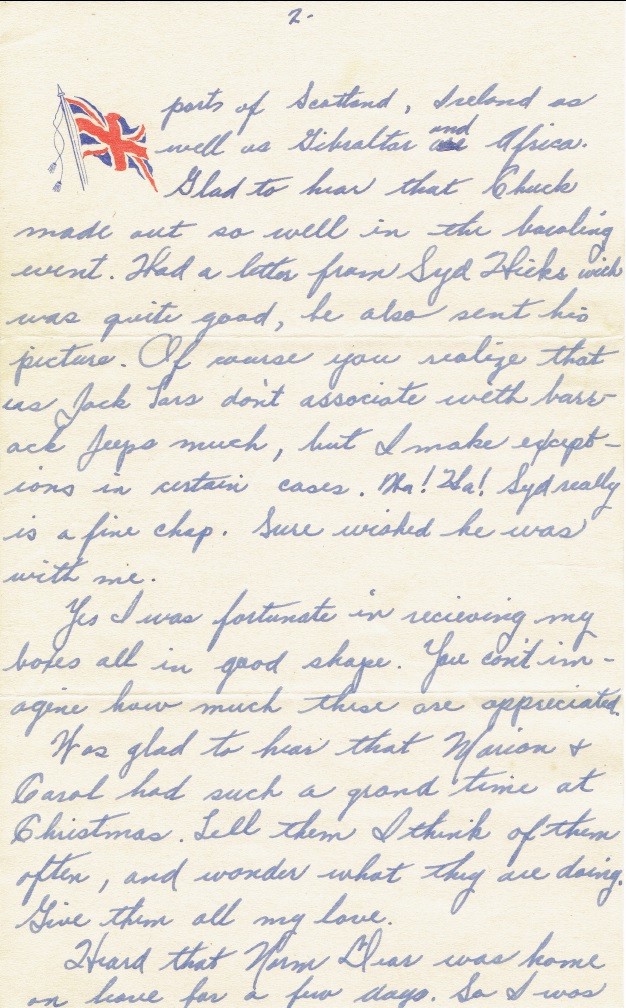 2-
parts of Scotland, Ireland as
well as Gibraltar and Africa.
Glad to hear that Chuck
made out so well in the bowling
event. Had a letter from Syd Hicks wich
was quite good, he also sent his
picture. Of course you realize that
us Jack Tars don't associate with barr-
ack Jeeps much, but I make except-
ions in certain cases. Ha! Ha! Syd really
is a fine chap. Sure wished he was
with me.
Yes I was fortunate in recieving my
boxes all in good shape. You can't im-
agine how much these are appreciated.
Was glad to hear that Marion &
Carol had such a grand time at
Christmas. Tell them I think of them
often, and wonder what they are doing.
Give them all my love.
Heard that Norm Dear was home
on leave for a few days. So I was